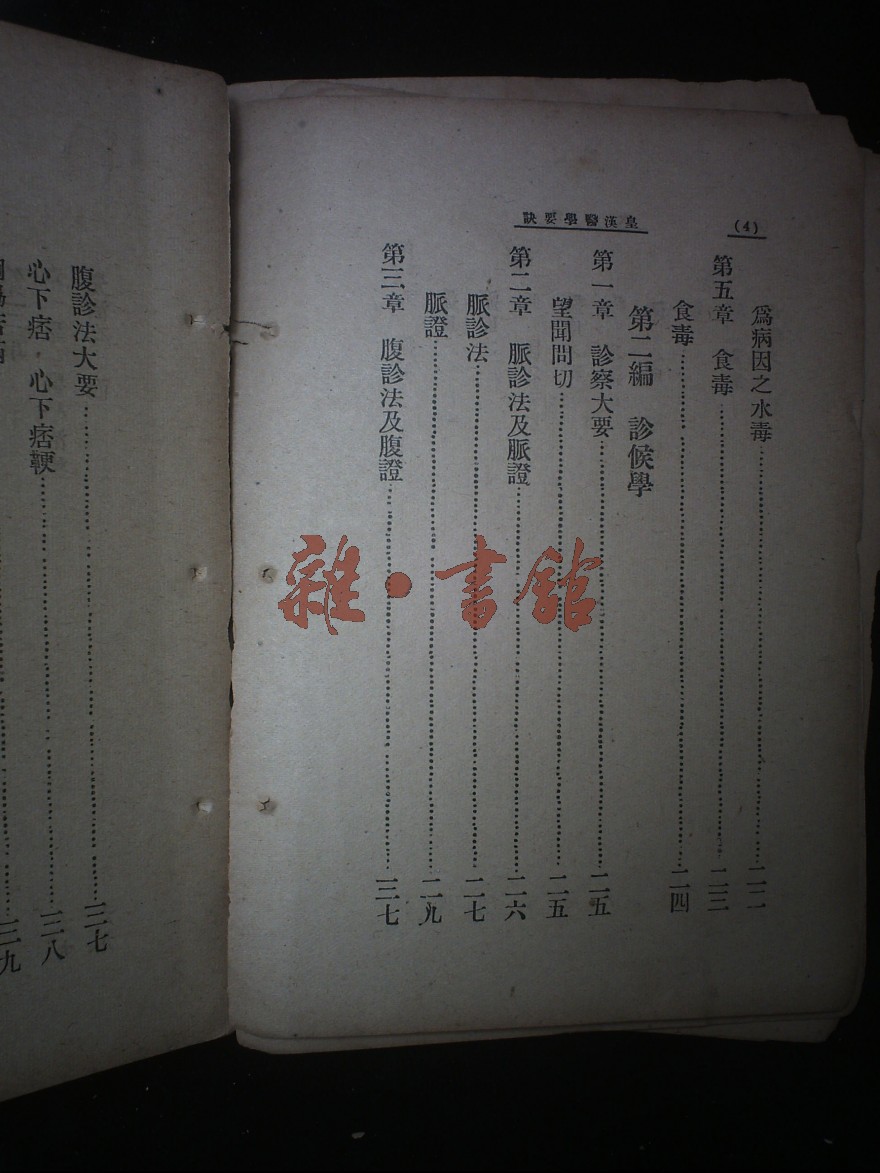 (4)
皇漢醫學要訣
爲病因之水毒……二二
第五章 食毒……二三
食毒……二四
第二編 診候學
第一章 診察大要……二五
望聞問切……二五
第二章 脈診法及脈證……二六
脈診法……二七
脈證……二九
第三章 腹診法及腹證……三七
腹診法大要……三七
心下痞 心下痞鞕……三八
三九
雜·書館